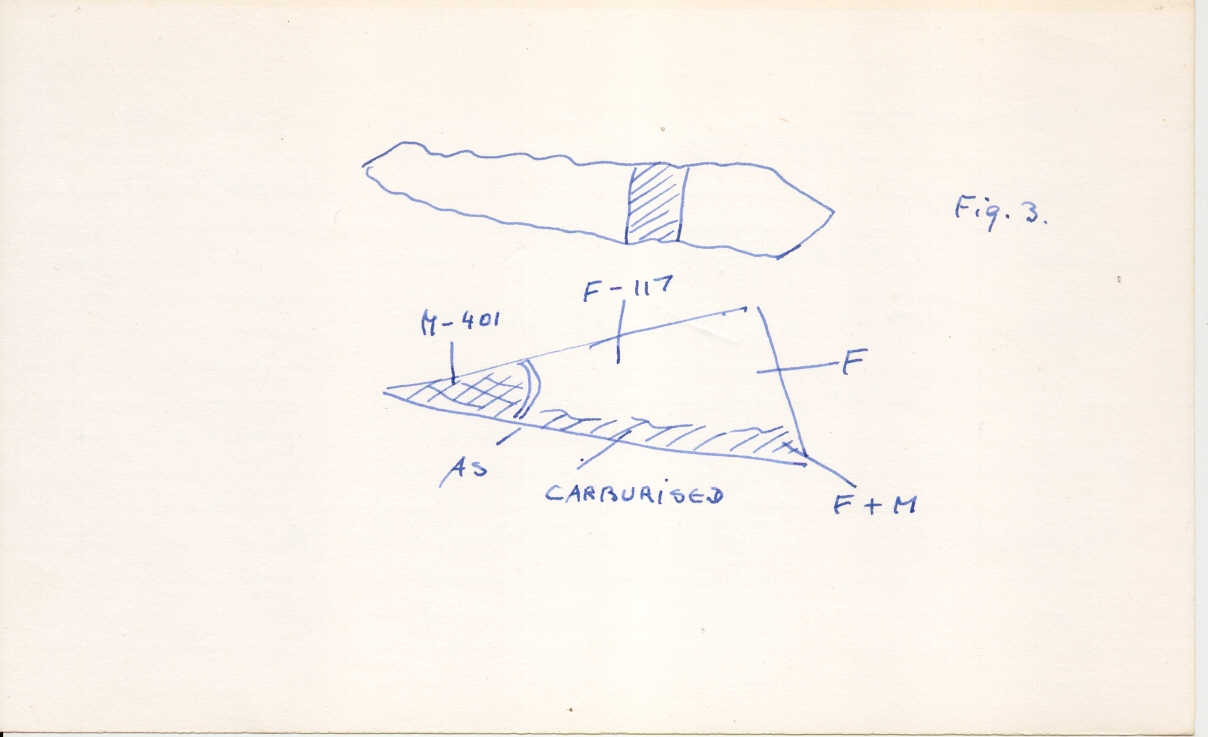 Fig. 3.
F-117
M-401
F
AS
CARBURiSED
F + M